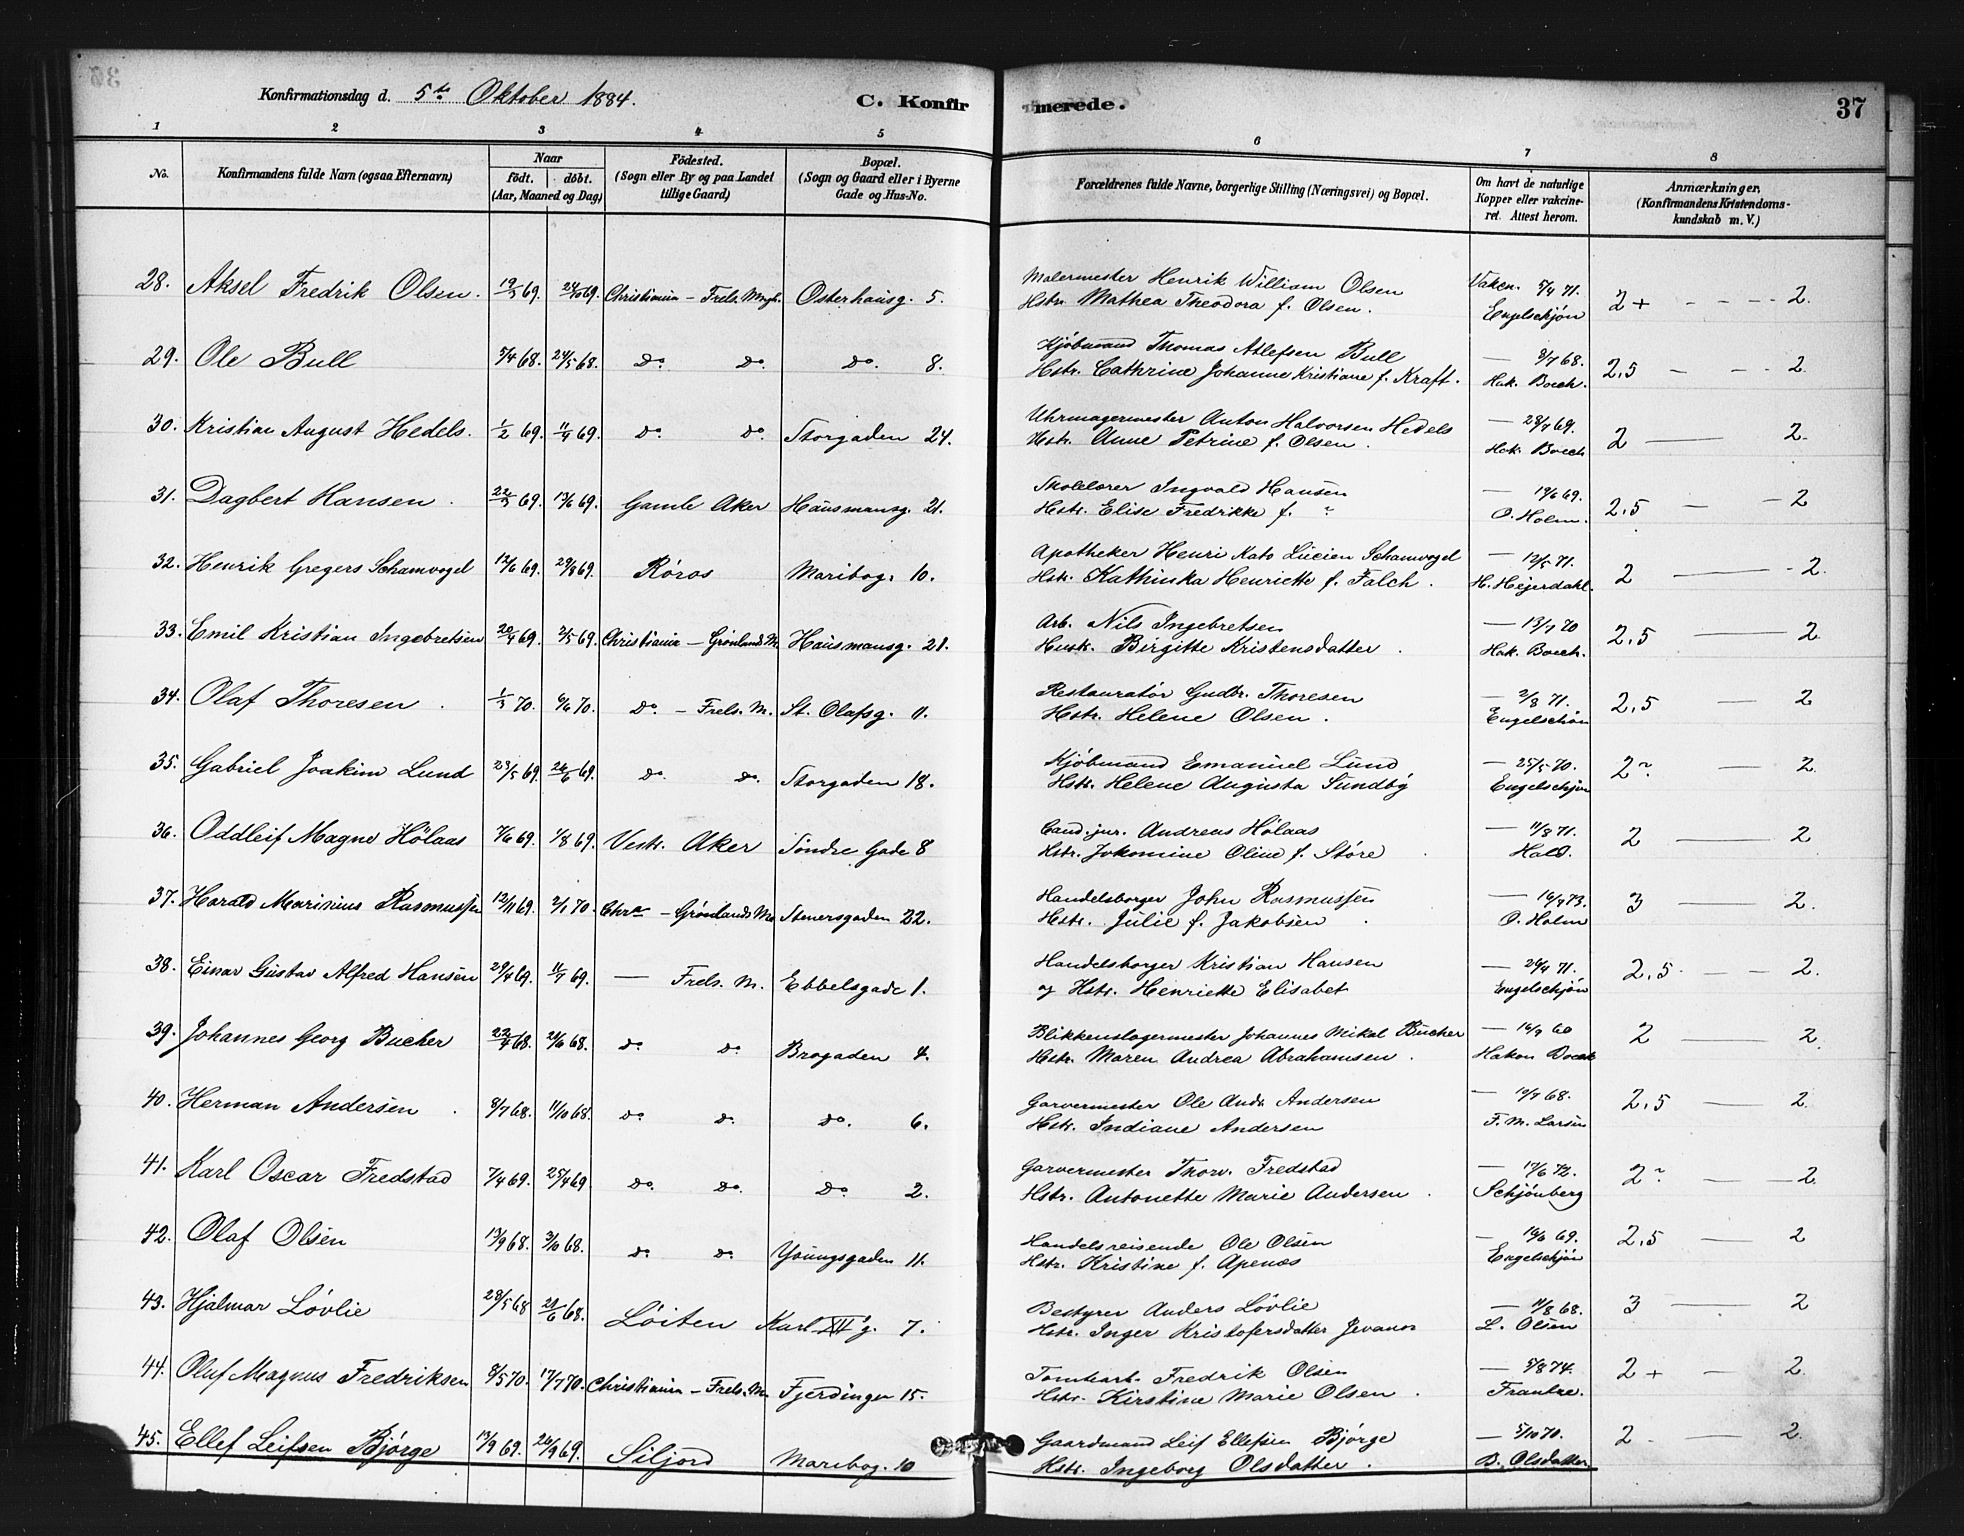 Konfirmationsdag d. 5te Oktober 1884. C. Konfirmerede. 37
1 2 3 4 5 6 7 8
No. Konfirmandens fulde Navn (ogsaa Efternavn) Naar født. døbt. (Aar, Maaned og Dag) Fødested. (Sogn eller By og paa Landet tillige Gaard) Bopæl. (Sogn og Gaard eller i Byerne Gade og Hus-No. Forældrenes fulde Navne, borgerlige Stilling (Næringsvei) og Bopæl. Om havt de naturlige Kopper eller vakcineret. Attest herom. Anmærkninger. (Konfirmandens Kristendomskundskab m. V.)
28. Aksel Fredrik Olsen. 19/5 69. 69. Christiania – Frels. Mgh. Osterhausg. 5. Malermester Henrik William Olsen Vakcn. 5/4 71. 2+ - - - - 2.
Hstr. Mathea Theodora f. Olsen. Engelschjøn
29. Ole Bull 5/4 68. 24/5 68. Do Do. Do. 8. Kjøbmand Thomas Atlefsen Bull — 8/7 68. 2,5 - - - 2.
Hstr. Cathrine Johanne Kristiane f. Kraft. Hak. Boeck.
30. Kristian August Hedels. 1/2 69. 11/4 69. Do. Do. Storgaden 24. Uhrmagermester Anton Halvorsen Hedels — 28/7 69. 2 — 2.
Hstr. Anne Petrine f. Olsen. Hak. Boeck
31. Dagbert Hansen. 22/3 69. 13/6 69. Gamle Aker Hausmansg. 21. Skolelærer Ingvald Hansen — 19/6 69. 2,5 — - 2
Hstr. Elise Fredrikke f. " O. Holm.
32. Henrik Gregers Schamvogel 12/6 69. 29/8 69. Röros Maribog. 10. Apotheker Henri Kato Lucien Schamvogel — 12/5 71. 2 — - 2.
Hstr. Kathinka Henriette f. Falch. H. Hejerdahl.
33. Emil Kristian Ingebretsen 20/4 69. 2/5 69. Christiania – Grönlands M. Hausmansg. 21. Arb. Nils Ingebretsen — 13/7 70 2,5 — 2
Hustr. Birgitte Kristensdatter. Hak. Boeck.
34. Olaf Thoresen. 1/3 70. 6/6 70. Do. – Frels. M. St. Olafsg. 11. Restauratör Gudbr. Thoresen — 2/8 71. 2,5 — 2
Hstr. Helene Olsen. Engelschön
35. Gabriel Joakim Lund 23/5 69. 26/6 69. Do. Do. Storgaden 18. Kjøbmand Emanuel Lund — 25/5 70. 2 — 2.
Hstr. Helene Augusta Sundby Engelschjøn
36. Oddleif Magne Hölaas 7/6 69. 1/8 69. Vestr. Aker Söndre Gade 8 Cand. jur. Andreas Hölaas — 11/8 71. 2 — 2
Hstr. Jokomine Oline f. Störe. Hald.
37. Harald Marinius Rasmussen 12/11 69. 2/1 70. Chra – Grönlands M. Stenersgaden 22. Handelsborger John Rasmussen — 16/9 73. 3 — 2.
Hstr. Julie f. Jakobsen. O. Holm
38. Einar Gustav Alfred Hansen 29/4 69. 11/7 69. — Frels. M. Ebbelsgade 1. Handelsborger Kristian Hansen — 26/4 71. 2,5. — 2.
og Hstr. Henriette Elisabet Engelschjøn
39. Johannes Georg Bucher 22/4 68. 21/6 68. Do Do Brogaden 4. Blikkenslagermester Johannes Mikal Bucher — 16/9 60 2 — 2.
Hstr. Maren Andrea Abrahamsen. Hakon Boeck
40. Herman Andersen. 8/7 68. 11/10 68. Do. Do. Do. 6. Garvermester Ole Andr. Andersen — 12/9 68. 2,5 — 2.
Hstr. Indiane Andersen F. M. Larsen
41. Karl Oscar Fredstad 7/4 69. 25/4 69 Do. Do. Do. 2. Garvermester Thorv. Fredstad — 17/6 72. 2 — 2.
Hstr. Antonette Marie Andersen. Schjönberg
42. Olaf Olsen 13/9 68. 3/10 68. Do. Do. Youngsgaden 11. Handelsreisende Ole Olsen — 16/6 69. 2,5 — 2
Hstr. Kristine f. Apenæs Engelschjön
43. Hjalmar Lövlie 28/5 68 21/6 68. Löiten Karl XII g. 7. Bestyrer Anders Lövlie — 11/8 68. 3 — 2
Hstr. Inger Kristofersdatter L. Olsen
44. Oluf Magnus Fredriksen 8/5 70. 17/7 70. Christiania – Frels. M. Fjerdingen 15. Tomtearb. Fredrik Olsen — 5/8 74. 2+ — 2.
Hstr. Kirstine Marie Olsen. Frantze.
45. Ellef Leifsen Bjørge 13/9 69. 26/9 69. Siljord Maribog. 10 Gaardmand Leif Ellefsen Bjørge — 5/10 71. 2 - — 2.
Hstr. Ingeborg Olsdatter. B. Olsdatter